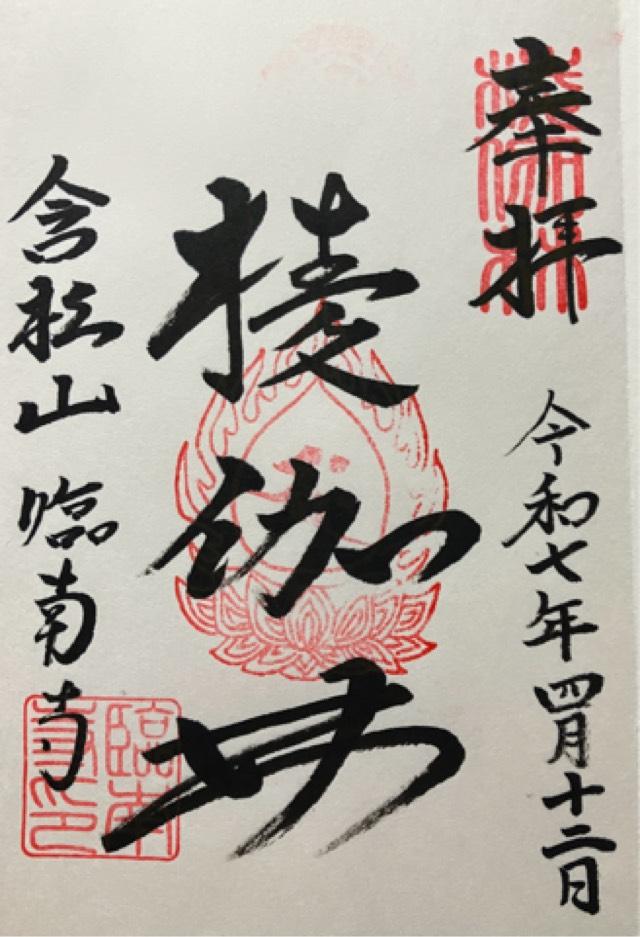 奉拝
令和七年四月十二日
棱伽林
含松山 臨南寺
臨南
寺印